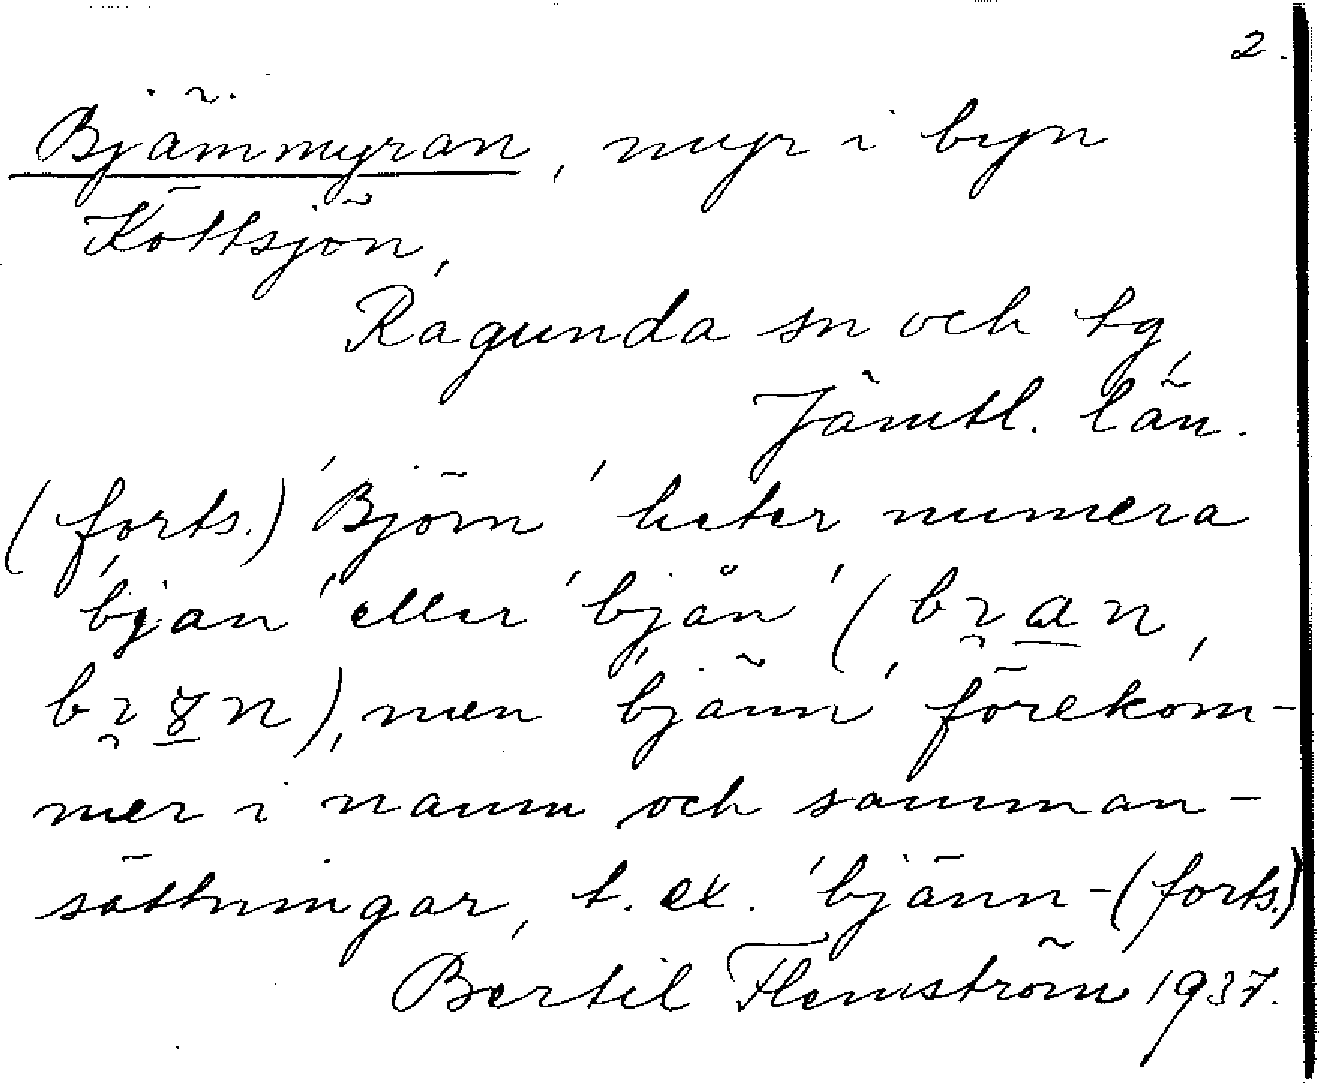 2.
Bjämmyran, myr i byn
Köttsjön,
Ragunda sn och tg,
Jämtl. län.
(forts.) 'Björn' heter numera
'bjan' eller 'bjån' (
), men 'bjänn' förekom-
mer i namn och samman-
sättningar, t. ex. 'bjänn- (forts.)
Bertil Flemström 1937.